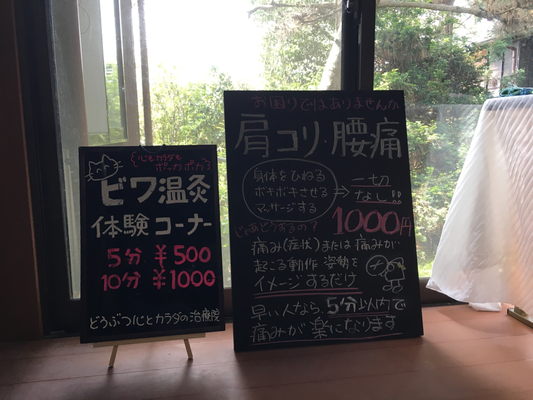 心もカラダも
ポッカポカ
ビワ温灸
体験コーナー
5分 ¥500
10分 ¥1000
どうぶつ心とカラダの治療院
お困りではありませんか
肩コリ・腰痛
身体をひねる
ボキボキさせる
マッサージする
⇒ 一切
なし!!
じゃあどうするの?
1000円
痛み(症状)または痛みが
起こる動作 姿勢を
イメージするだけ
早い人なら、5分以内で
痛みが楽になります